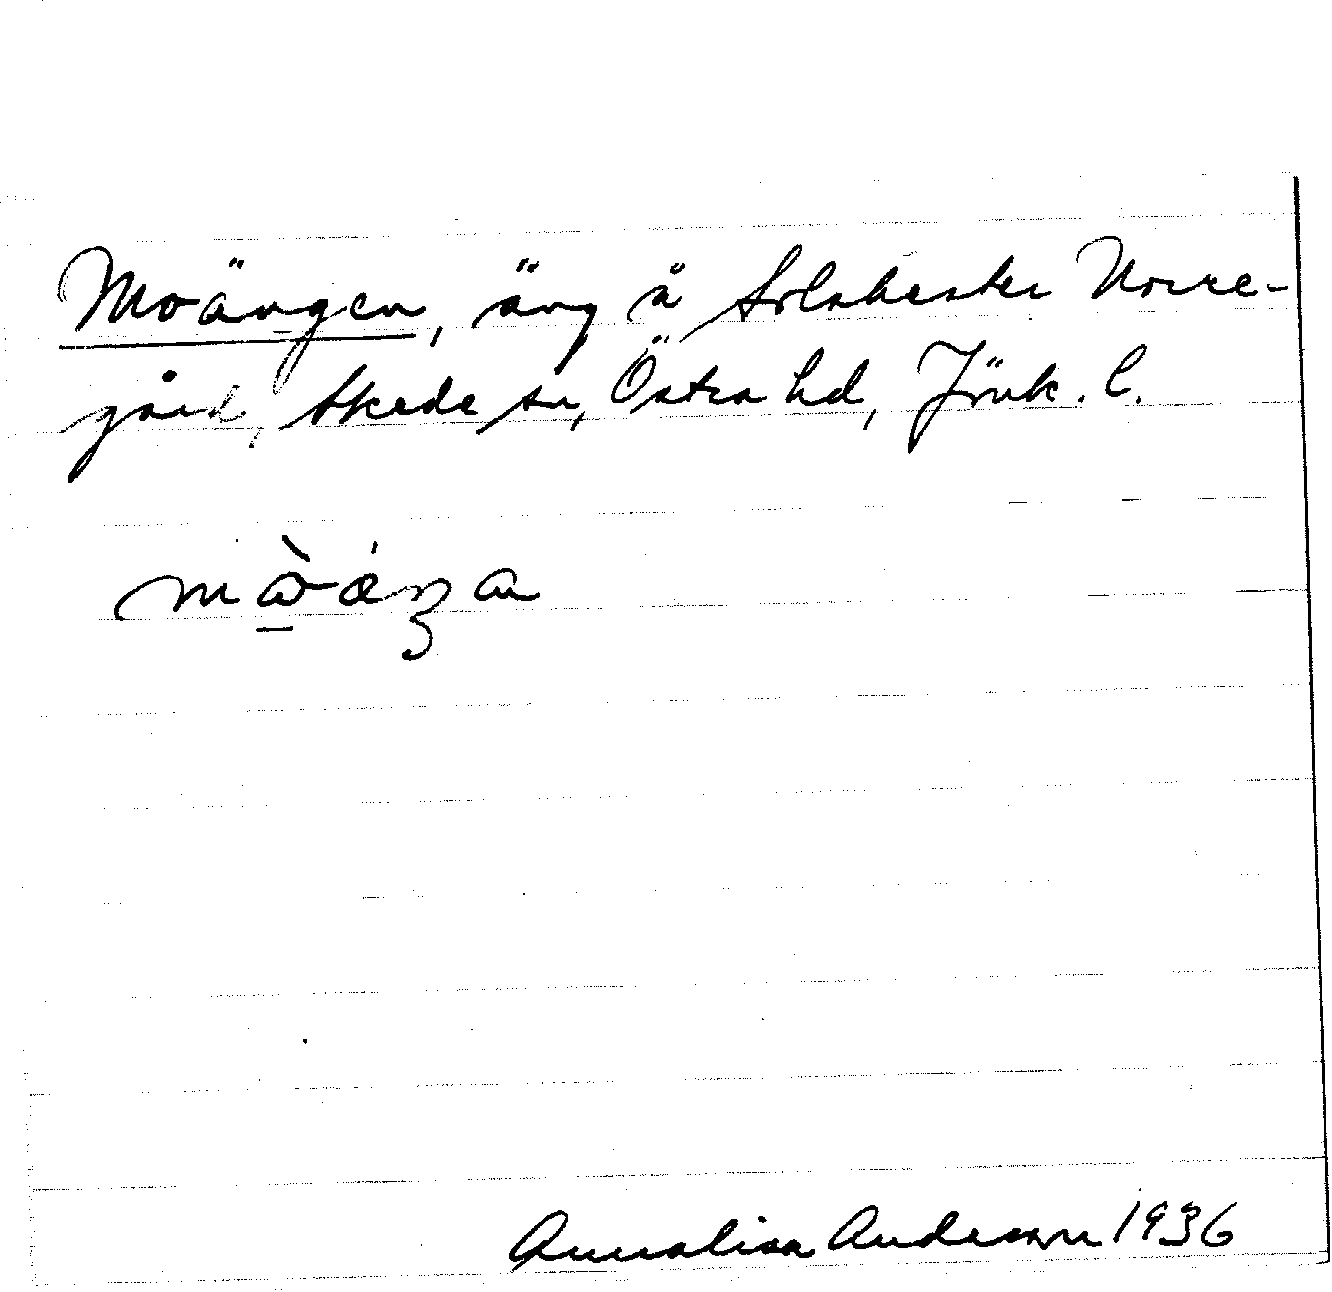 Moängen, äng å Solaberker Norre-
gård, Skede sn, Östra hd, Jönk. l.
mòäŋa
Annalisa Anderson 1936